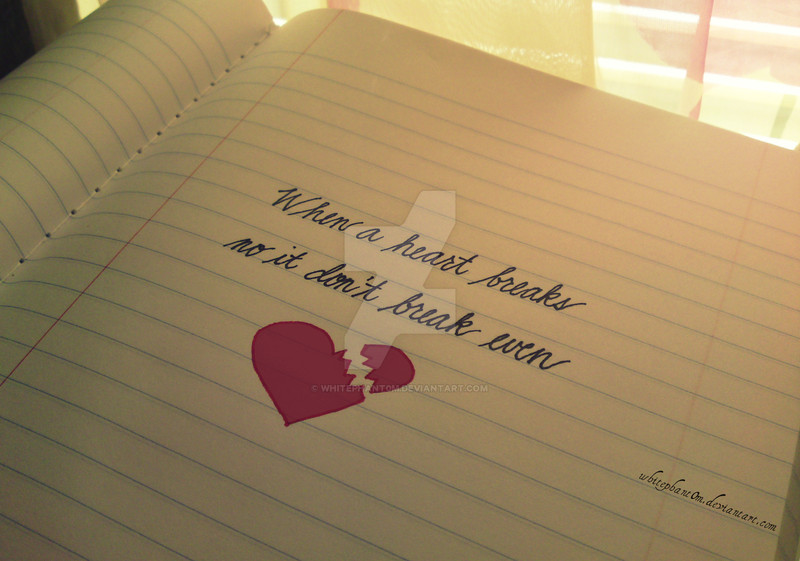 When a heart breaks
no it don't break even
© WHITEPHANT0M.DEVIANTART.COM
whitephant0m.deviantart.com